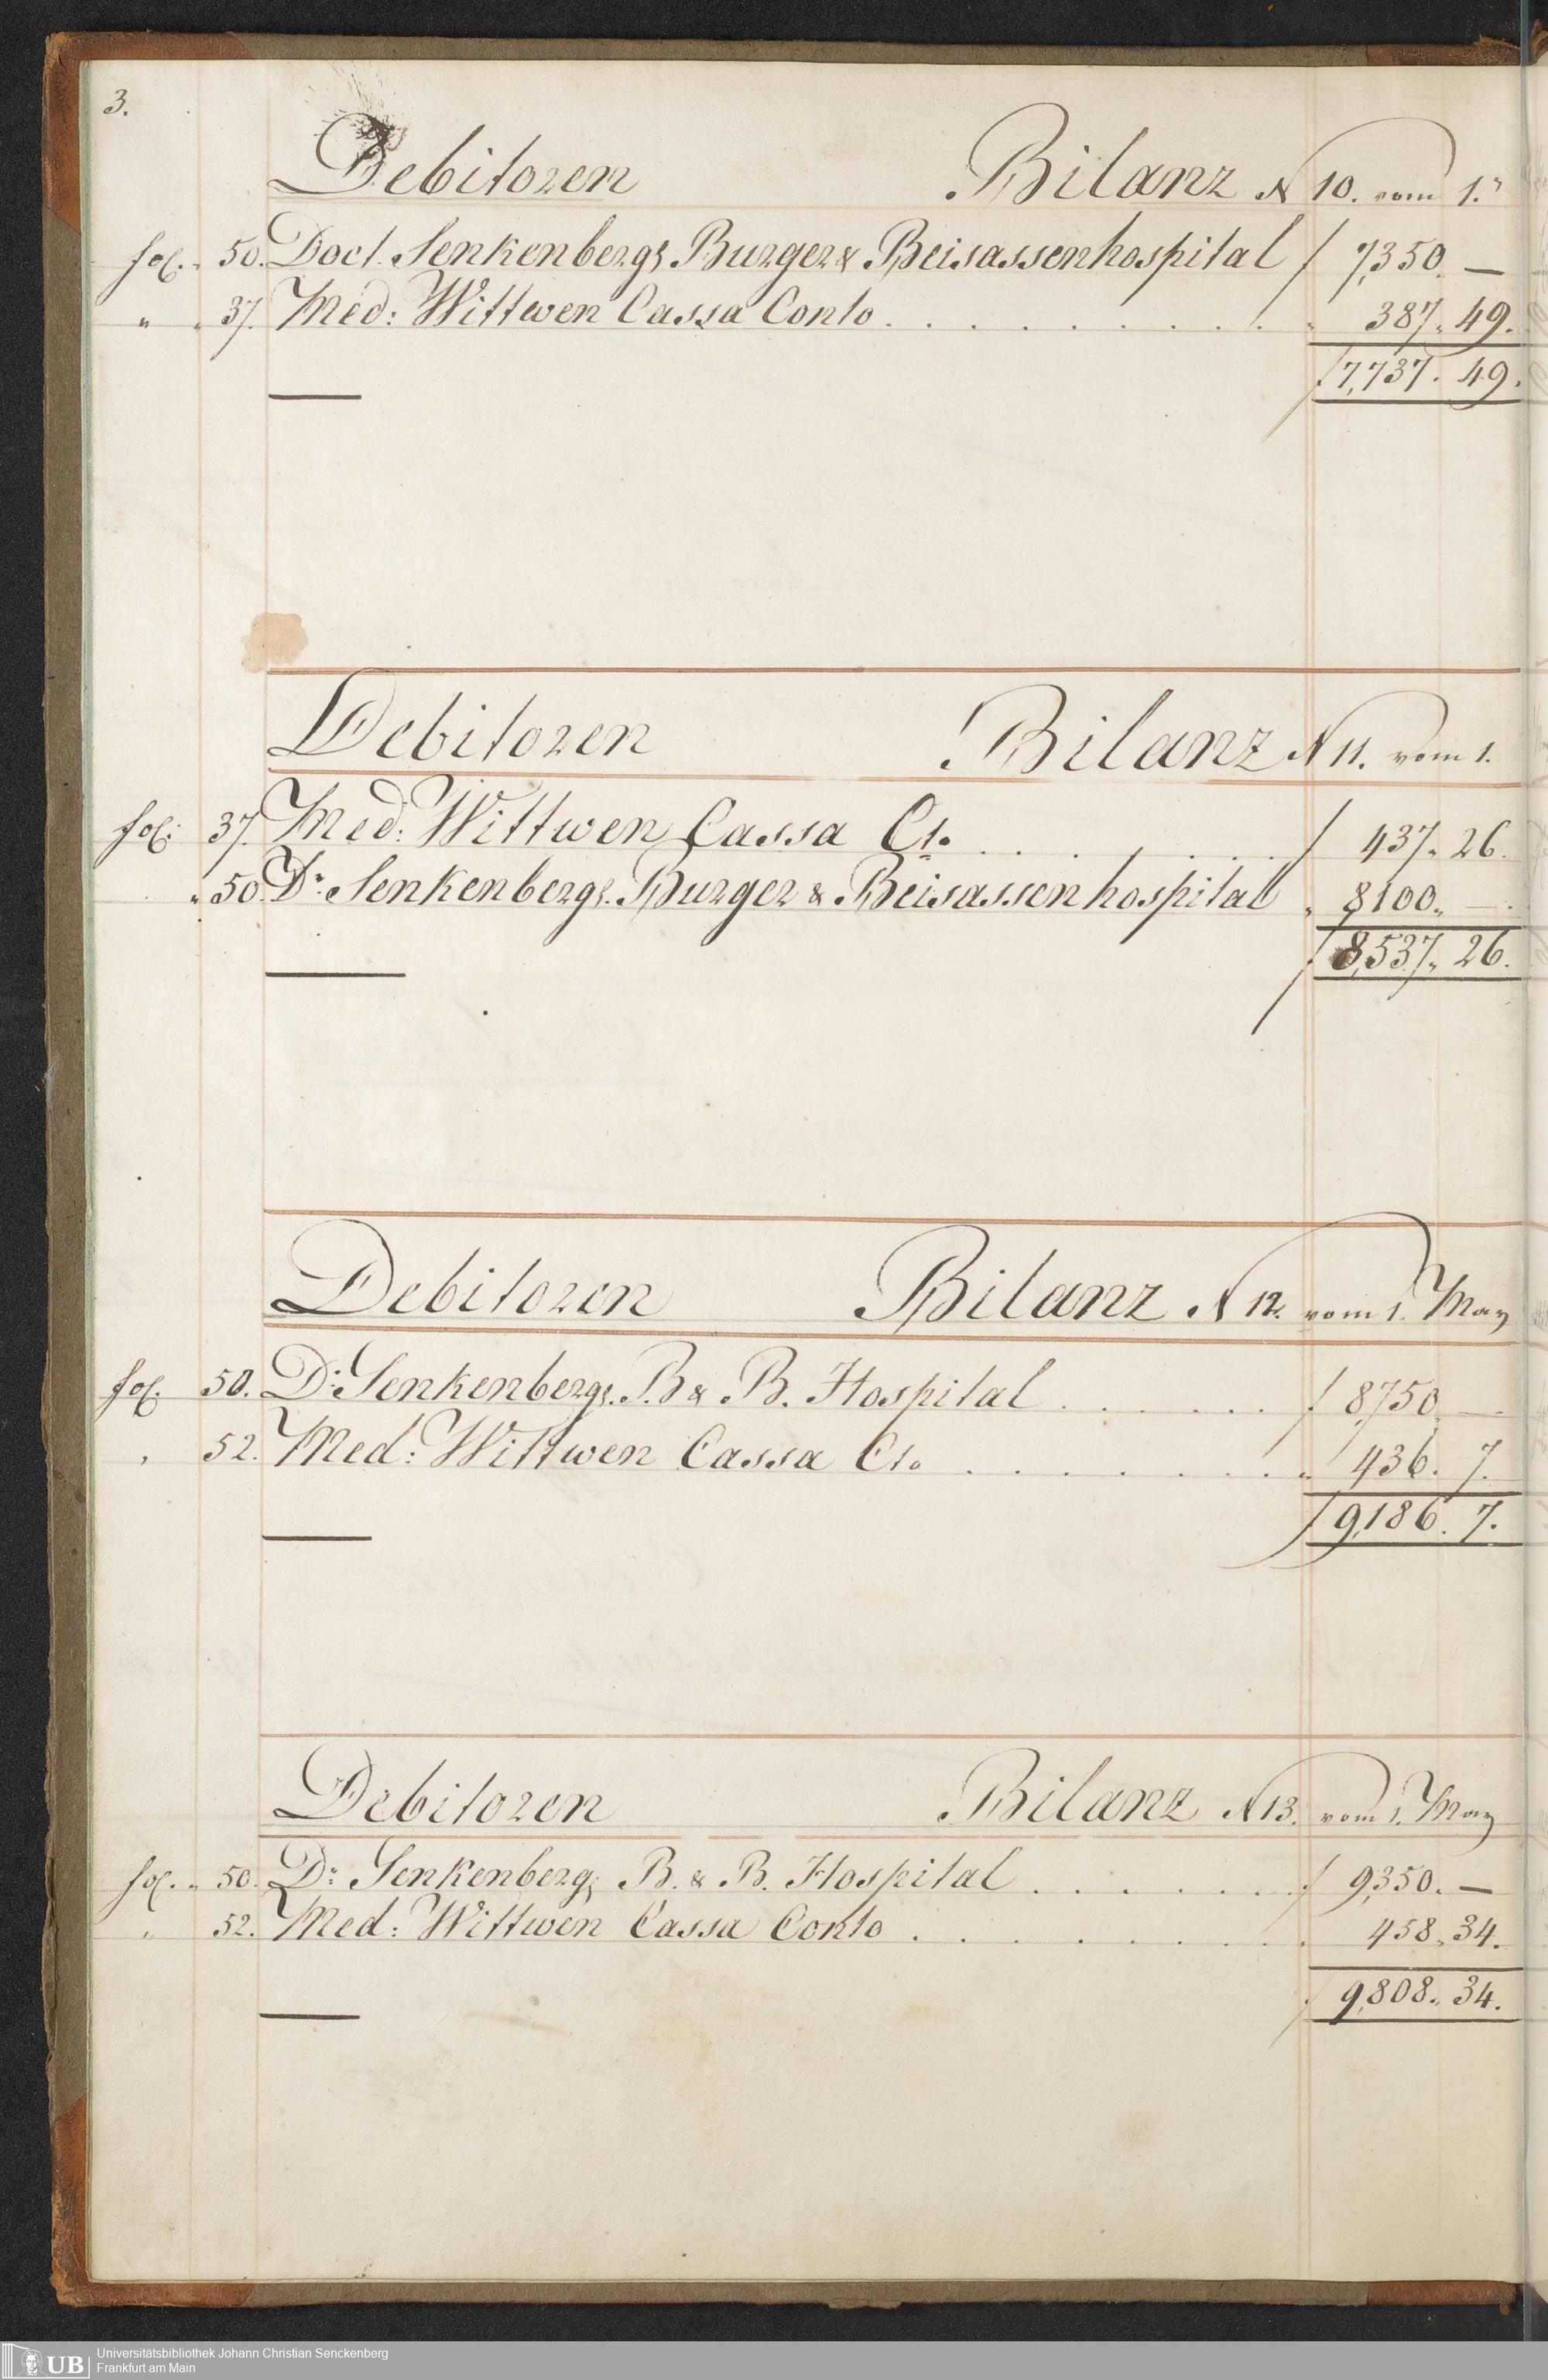 3.
Debitoren Bilanz N 10. vom 1.
fol. 50. Doct. Senkenbergs Burger & Beisassenhospital f 7,350. —
" " 37. Med: Wittwen Cassa Conto . . . . . . . . . " 387. 49.
f 7,737. 49.
Debitoren Bilanz N 11. vom 1.
fol: 37. Med: Wittwen Cassa Cto. . . . . . . . f 437. 26.
" 50. Dr. Senkenbergs. Burger & Beisassenhospital " 8100. —.
f 8,537. 26.
Debitoren Bilanz N 12. vom 1. May
fol. 50. Dr. Senkenbergs. B & B. Hospital . . . . . . f 8,750 —
" 52. Med: Wittwen Cassa Cto . . . . . . . . " 436. 7.
f 9,186. 7.
Debitoren Bilanz N 13. vom 1. May
fol. " 50. Dr. Senkenbergs B. & B. Hospital . . . . . . . f 9,350. —
" 52. Med: Wittwen Cassa Conto . . . . . . . . . 458. 34.
f 9,808. 34.
UB
Universitätsbibliothek Johann Christian Senckenberg
Frankfurt am Main